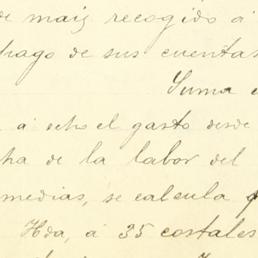 de maiz recogido á
pago de sus cuentas
Suma
á ocho el gasto desde
de la labor del
medias, se calcula
Hda, á 35 costales